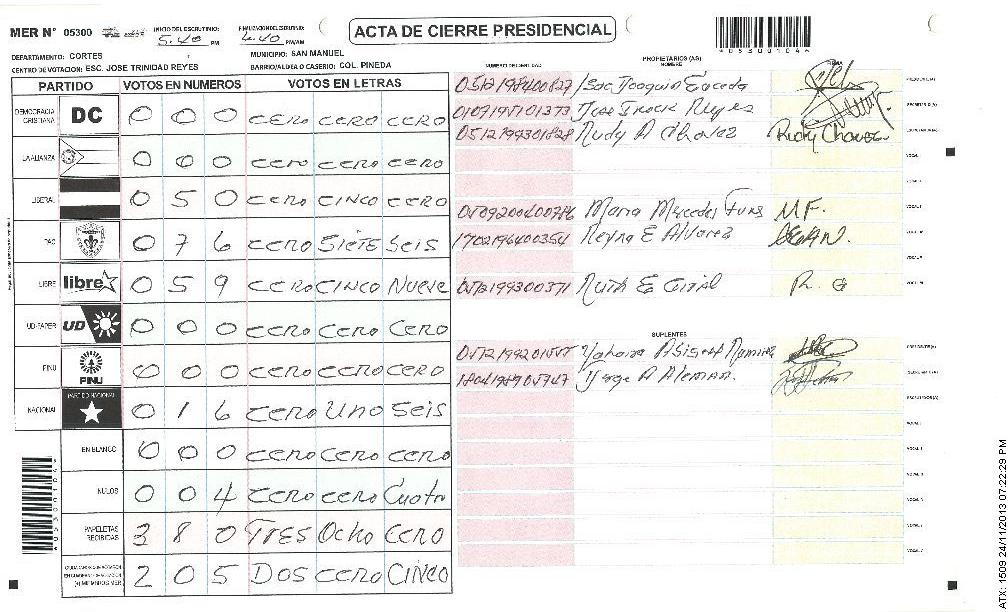 MER N° 05300 INICIO DEL ESCRUTINIO: 5:40 PM FINALIZACION DEL ESCRUTINIO: 6:40 P.M/A.M
ACTA DE CIERRE PRESIDENCIAL
*053001044*
DEPARTAMENTO: CORTES MUNICIPIO: SAN MANUEL
CENTRO DE VOTACION: ESC. JOSE TRINIDAD REYES BARRIO/ALDEA O CASERIO: COL. PINEDA
PARTIDO VOTOS EN NUMEROS VOTOS EN LETRAS
DEMOCRACIA CRISTIANA DC 0 0 0 CERO CERO CERO
LA ALIANZA 0 0 0 CERO CERO CERO
LIBERAL 0 5 0 CERO CINCO CERO
PAC 0 7 6 CERO SIETE SEIS
LIBRE libre 0 5 9 CERO CINCO Nueve
UD-FAPER UD 0 0 0 CERO CERO CERO
PINU PINU 0 0 0 CERO CERO CERO
NACIONAL PARTIDO NACIONAL 0 1 6 CERO UNO SEIS
EN BLANCO 0 0 0 CERO CERO CERO
NULOS 0 0 4 CERO CERO Cuatro
PAPELETAS RECIBIDAS 3 8 0 TRES OCHO CERO
2 0 5 DOS CERO CINCO
PROPIETARIOS (AS)
NUMERO DE IDENTIDAD NOMBRE
Isac Joaquin
Jose
Rudy A Chavez Rudy Chavez
Maria Mercedes M.F.
1702196400354 Reyna E Alvarez
Ruth E R. G
SUPLENTES
Jorge A Aleman.
ATX: 1509 24/11/2013 07:22:29 PM